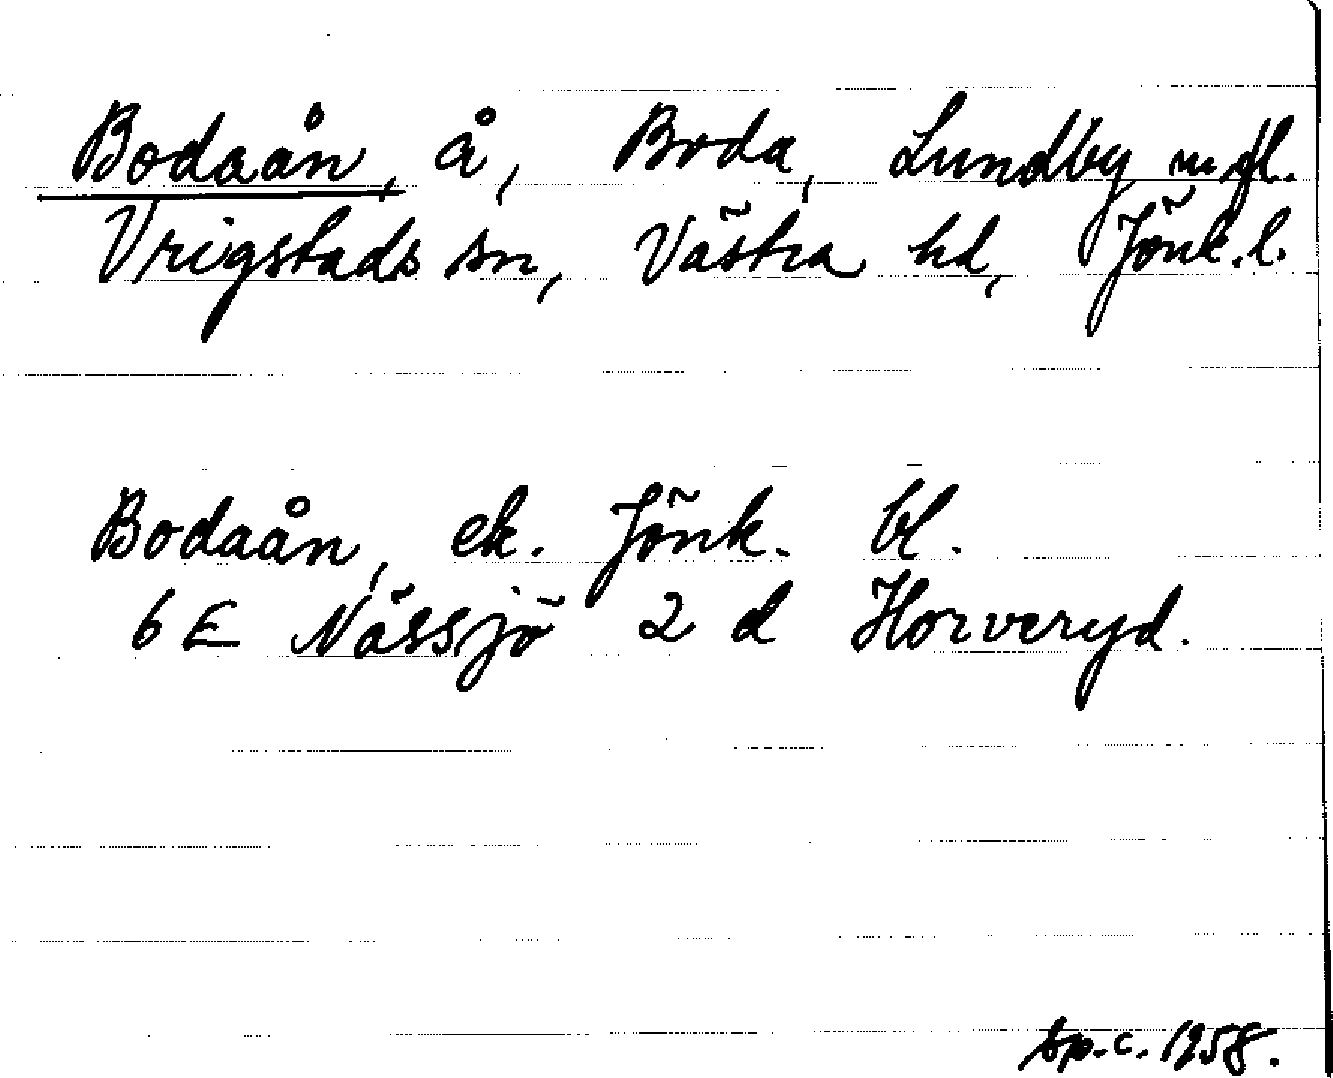 Bodaån, å, Boda, Lundby m fl.
Vrigstads sn, Västra hd, Jönk. l.
Bodaån, ek. Jönk. bl.
6 E Nässjö 2 d Horveryd.
sp.c. 1958.